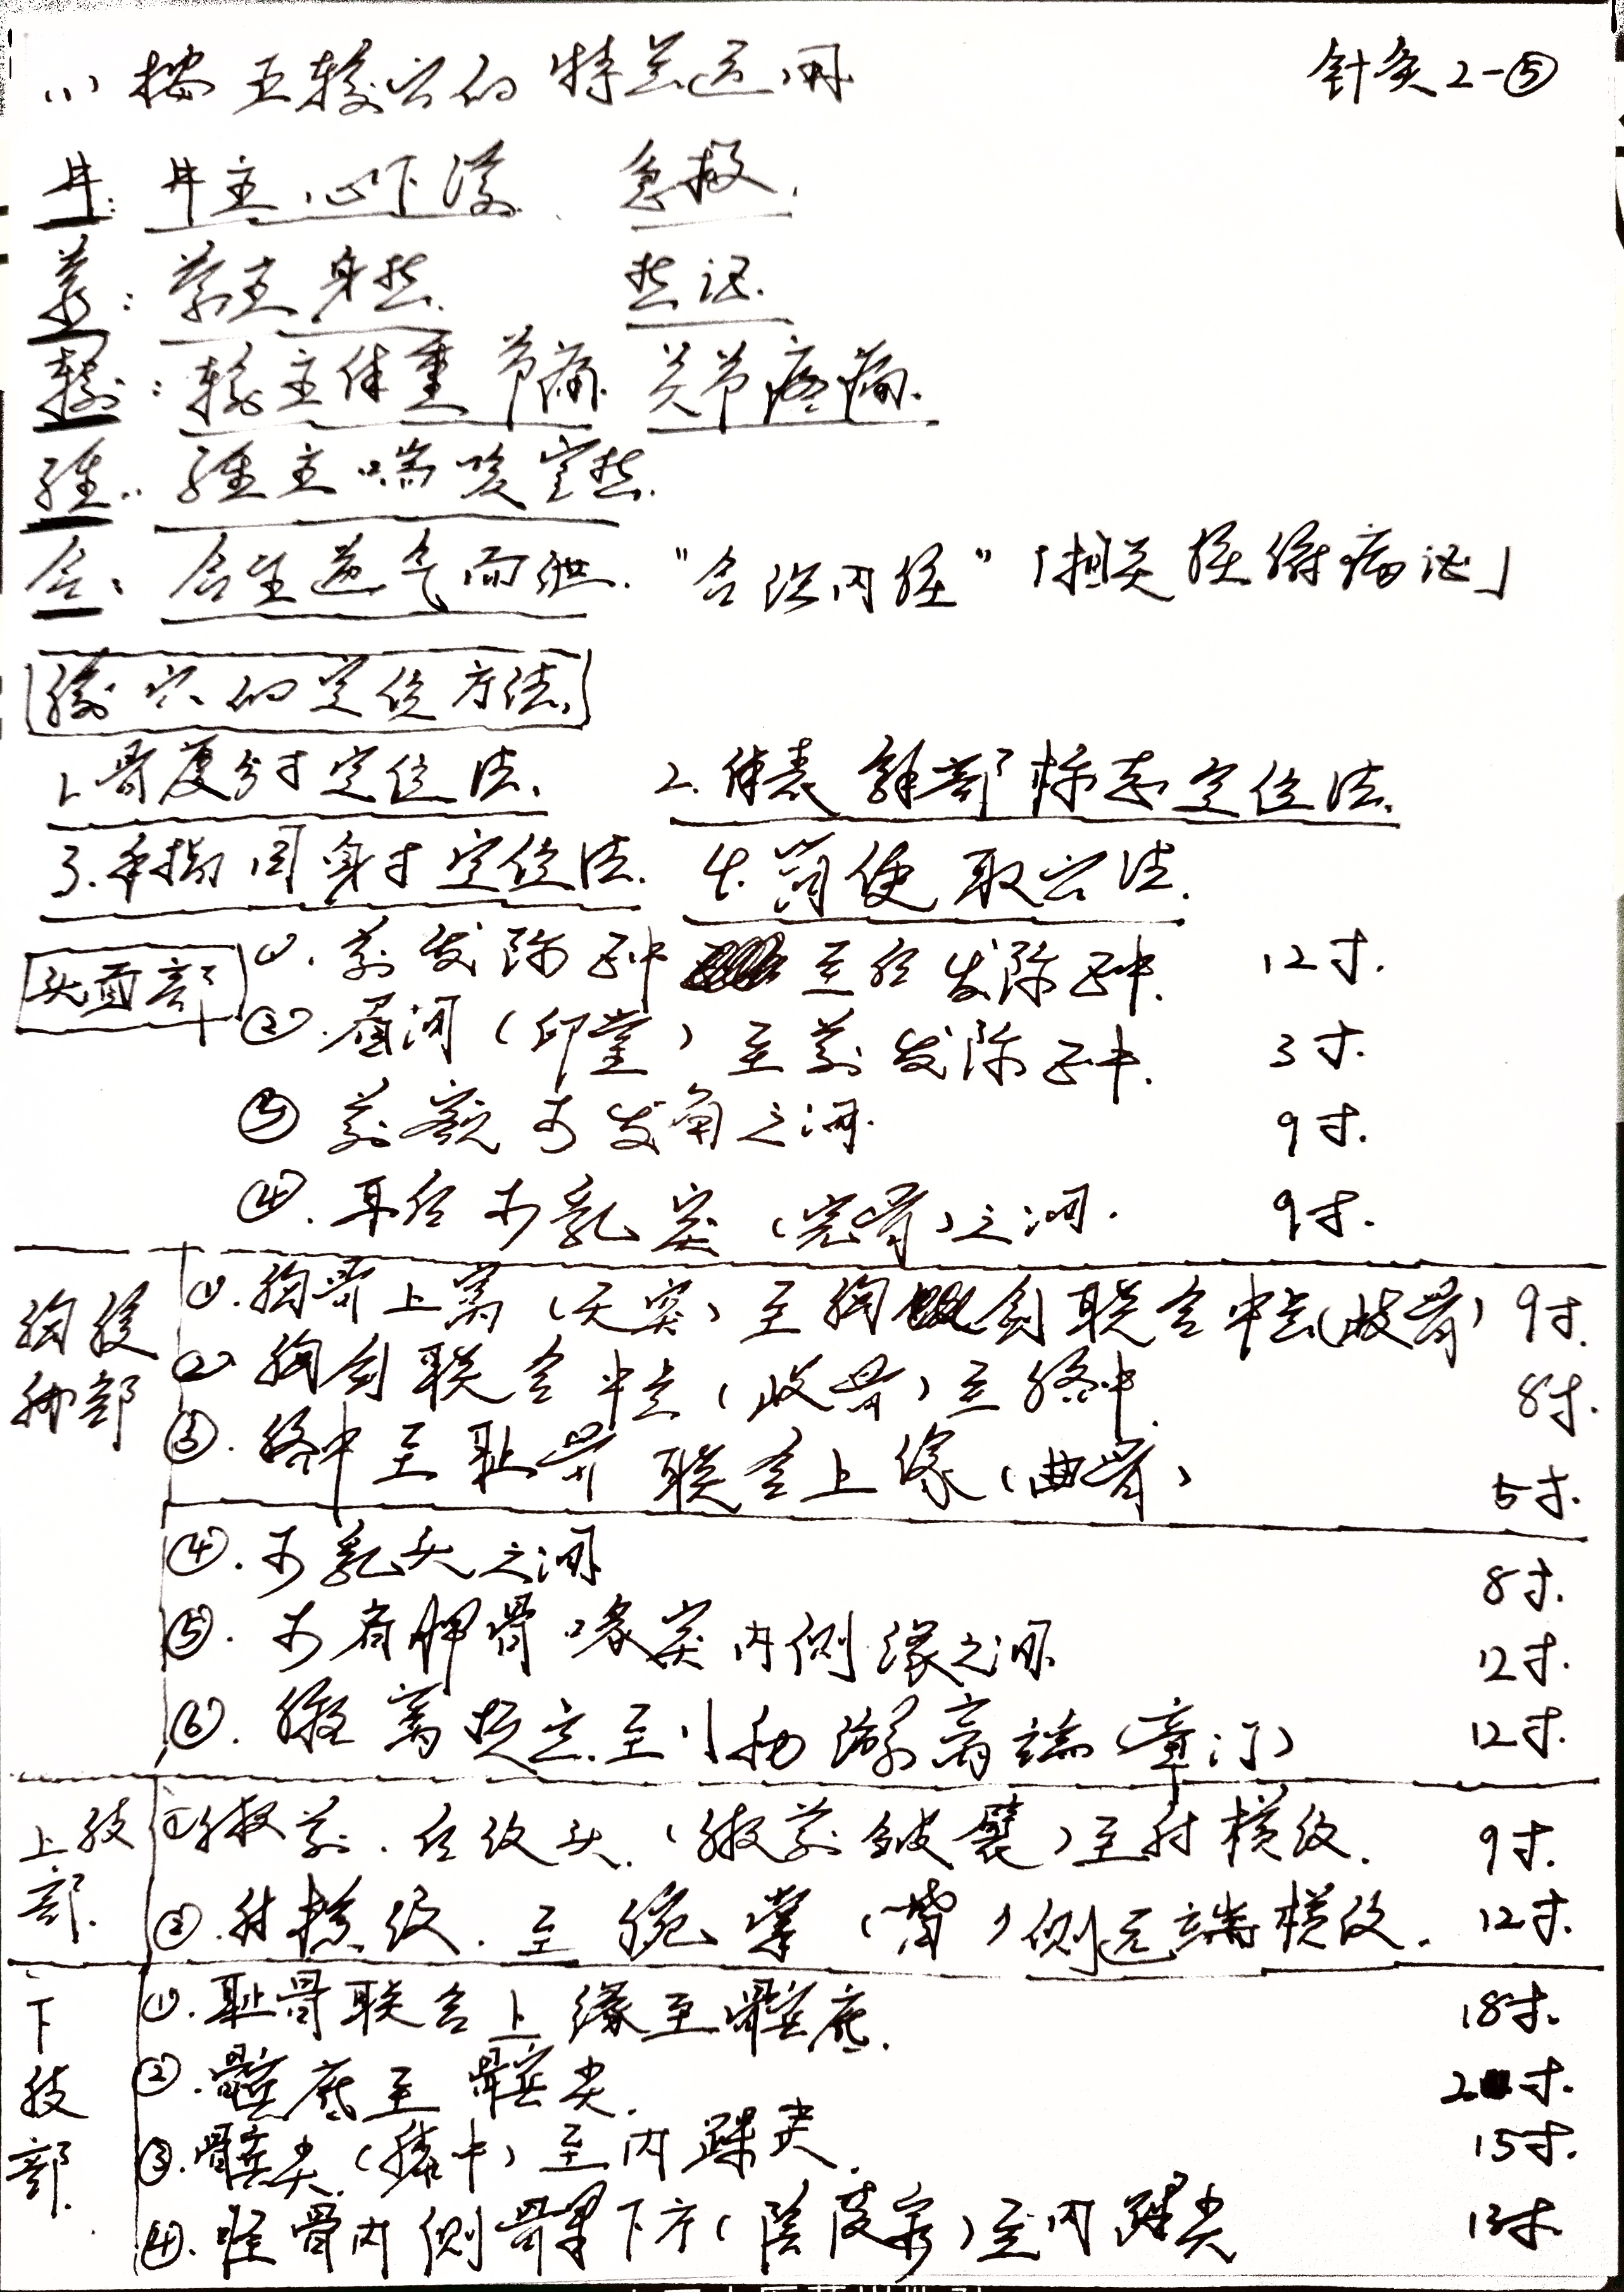 (1) 按五输穴的特点运用
针灸2-⑤
井: 井主心下满、急救.
荥: 荥主身热. 热证.
输: 输主体重节痛. 关节疼痛.
经: 经主喘咳寒热.
合: 合主逆气而泄. "合治内腑" 「相关脏腑病证」
腧穴的定位方法
1. 骨度分寸定位法. 2. 体表解剖标志定位法.
3. 手指同身寸定位法. 4. 简便取穴法.
头面部
①. 前发际正中至后发际正中. 12寸.
②. 眉间(印堂)至前发际正中. 3寸.
③ 前额两发角之间. 9寸.
④. 耳后两乳突(完骨)之间. 9寸.
胸腹胁部
①. 胸骨上窝(天突)至胸剑联合中点(歧骨) 9寸.
② 胸剑联合中点(歧骨)至脐中. 8寸.
③. 脐中至耻骨联合上缘(曲骨) 5寸.
④. 两乳头之间 8寸.
⑤. 两肩胛骨喙突内侧缘之间 12寸.
⑥. 腋窝顶点至11肋游离端(章门) 12寸.
上肢部.
①腋前.后纹头.(腋前皱襞)至肘横纹. 9寸.
②.肘横纹.至腕掌(背)侧远端横纹. 12寸.
下肢部.
①.耻骨联合上缘至髌底. 18寸.
②.髌底至髌尖. 2寸.
③.髌尖(膝中)至内踝尖. 15寸.
④.胫骨内侧髁下方(阴陵泉)至内踝尖 13寸.